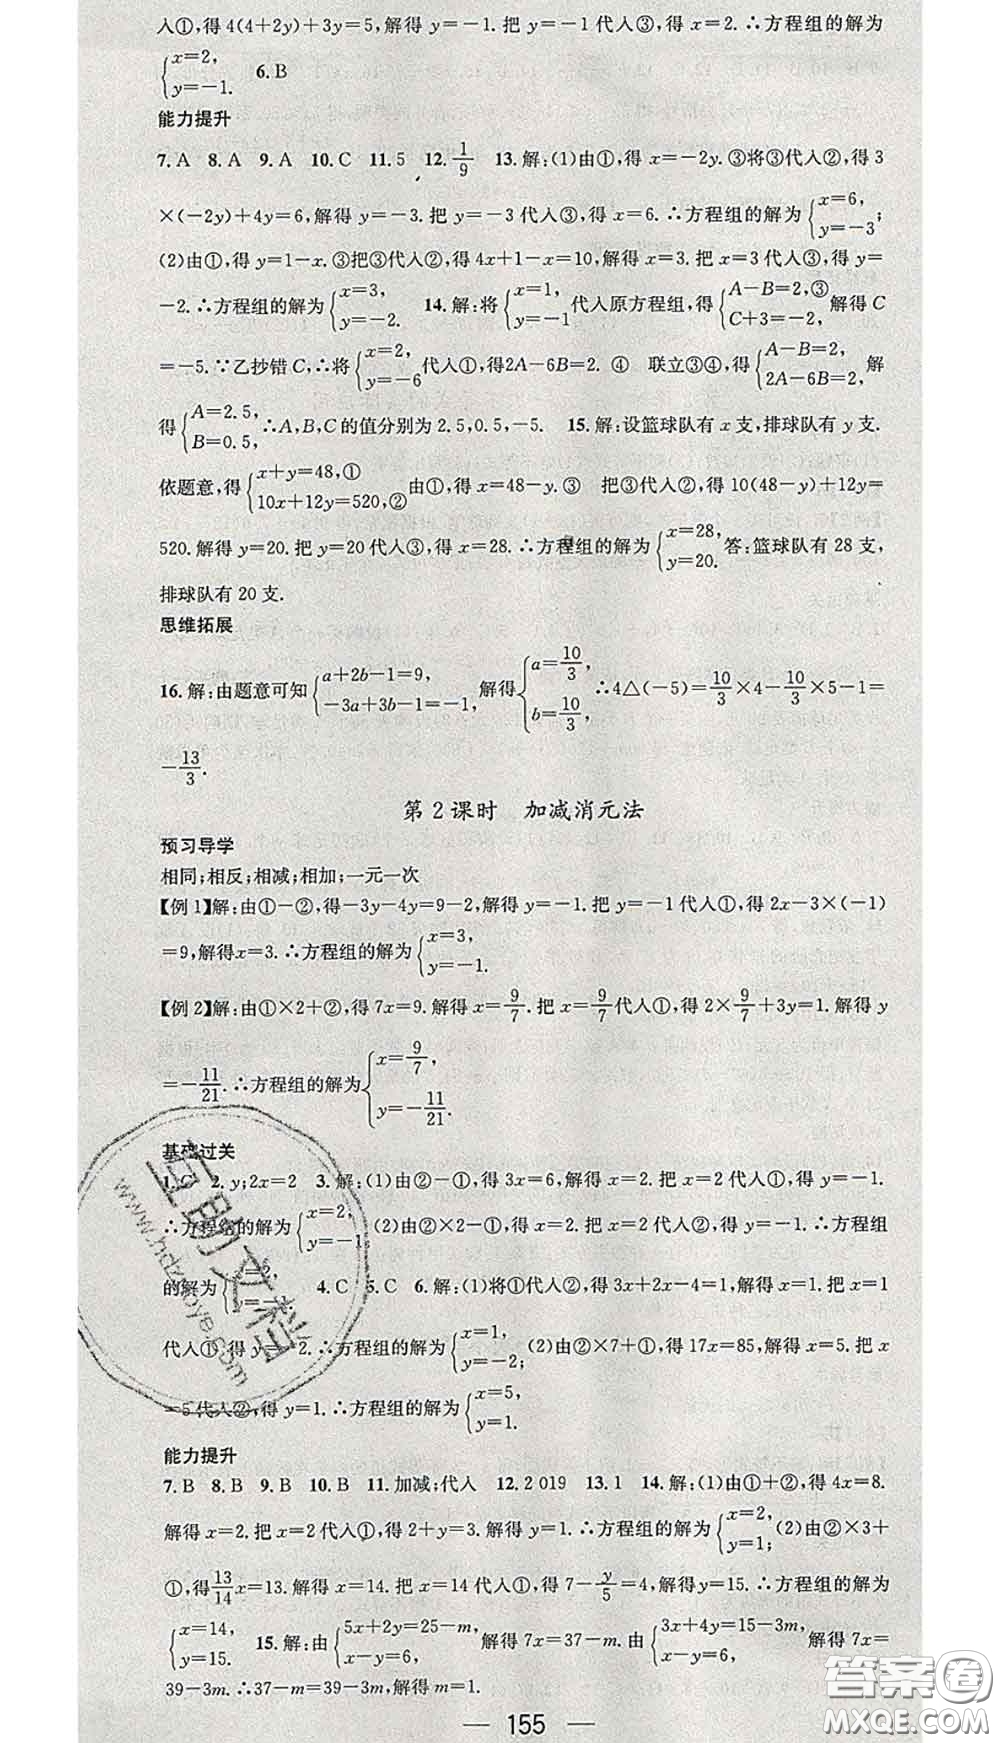 入①,得4(4+2y)+3y=5,解得 y=-1. 把 y=-1代入③,得x=2. ∴方程组的解为
{x=2, y=-1. 6. B
能力提升
7. A 8. A 9. A 10. C 11. 5 12. 1/9 13. 解:(1)由①,得 x=-2y. ③将③代入②,得 3
×(-2y)+4y=6,解得 y=-3. 把 y=-3代入③,得 x=6. ∴方程组的解为{x=6, y=-3;
(2)由①,得 y=1-x. ③把③代入②,得 4x+1-x=10,解得 x=3. 把 x=3代入③,得 y=
-2. ∴方程组的解为{x=3, y=-2. 14. 解:将{x=1, y=-1代入原方程组,得{A-B=2,③ C+3=-2,解得 C
=-5. ∵乙抄错 C,∴将{x=2, y=-6代入①,得2A-6B=2. ④ 联立③④,得{A-B=2, 2A-6B=2,解
得{A=2.5, B=0.5,∴A,B,C的值分别为 2.5,0.5,-5. 15. 解:设篮球队有 x 支,排球队有 y 支.
依题意,得{x+y=48,① 10x+12y=520,②由①,得 x=48-y. ③ 把③代入②,得 10(48-y)+12y=
520. 解得 y=20. 把 y=20代入③,得 x=28. ∴方程组的解为{x=28, y=20. 答:篮球队有 28 支,
排球队有 20 支.
思维拓展
16. 解:由题意可知{a+2b-1=9, -3a+3b-1=-1,解得{a=10/3, b=10/3,∴4△(-5)=10/3×4-10/3×5-1=
-13/3.
第2课时 加减消元法
预习导学
相同;相反;相减;相加;一元一次
【例1】解:由①-②,得-3y-4y=9-2,解得 y=-1. 把 y=-1代入①,得 2x-3×(-1)
=9,解得x=3. ∴方程组的解为{x=3, y=-1.
【例2】解:由①×2+②,得 7x=9. 解得 x=9/7. 把 x=9/7代入①,得 2×9/7+3y=1. 解得 y
=-11/21. ∴方程组的解为{x=9/7, y=-11/21.
基础过关
1. C 2. y;2x=2 3. 解:(1)由②-①,得 3x=6,解得 x=2. 把 x=2代入①,得 y=-1.
∴方程组的解为{x=2, y=-1; (2)由②×2-①,得 5x=10. 解得 x=2. 把 x=2代入②,得 y=-1. ∴方程组
的解为 4. C 5. C 6. 解:(1)将①代入②,得 3x+2x-4=1,解得 x=1. 把 x=1
代入①,得 y=-2. ∴方程组的解为{x=1, y=-2; (2)由②×7+①,得 17x=85,解得 x=5. 把 x
=5代入②,得 y=1. ∴方程组的解为{x=5, y=1.
能力提升
7. B 8. B 9. B 10. B 11. 加减;代入 12. 2 019 13. 1 14. 解:(1)由①+②,得 4x=8.
解得 x=2. 把 x=2代入①,得 2+y=3. 解得 y=1. ∴方程组的解为{x=2, y=1; (2)由②×3+
①,得13/14x=13. 解得 x=14. 把 x=14代入①,得 7-y/5=4. 解得 y=15. ∴方程组的解为
{x=14, y=15. 15. 解:由{5x+2y=25-m, x-y=6, 解得 7x=37-m. 由{3x+4y=15-3m, x-y=6, 解得 7x=
39-3m. ∴37-m=39-3m,解得 m=1.
— 155 —
互助文档
答案卷
MXQE.COM